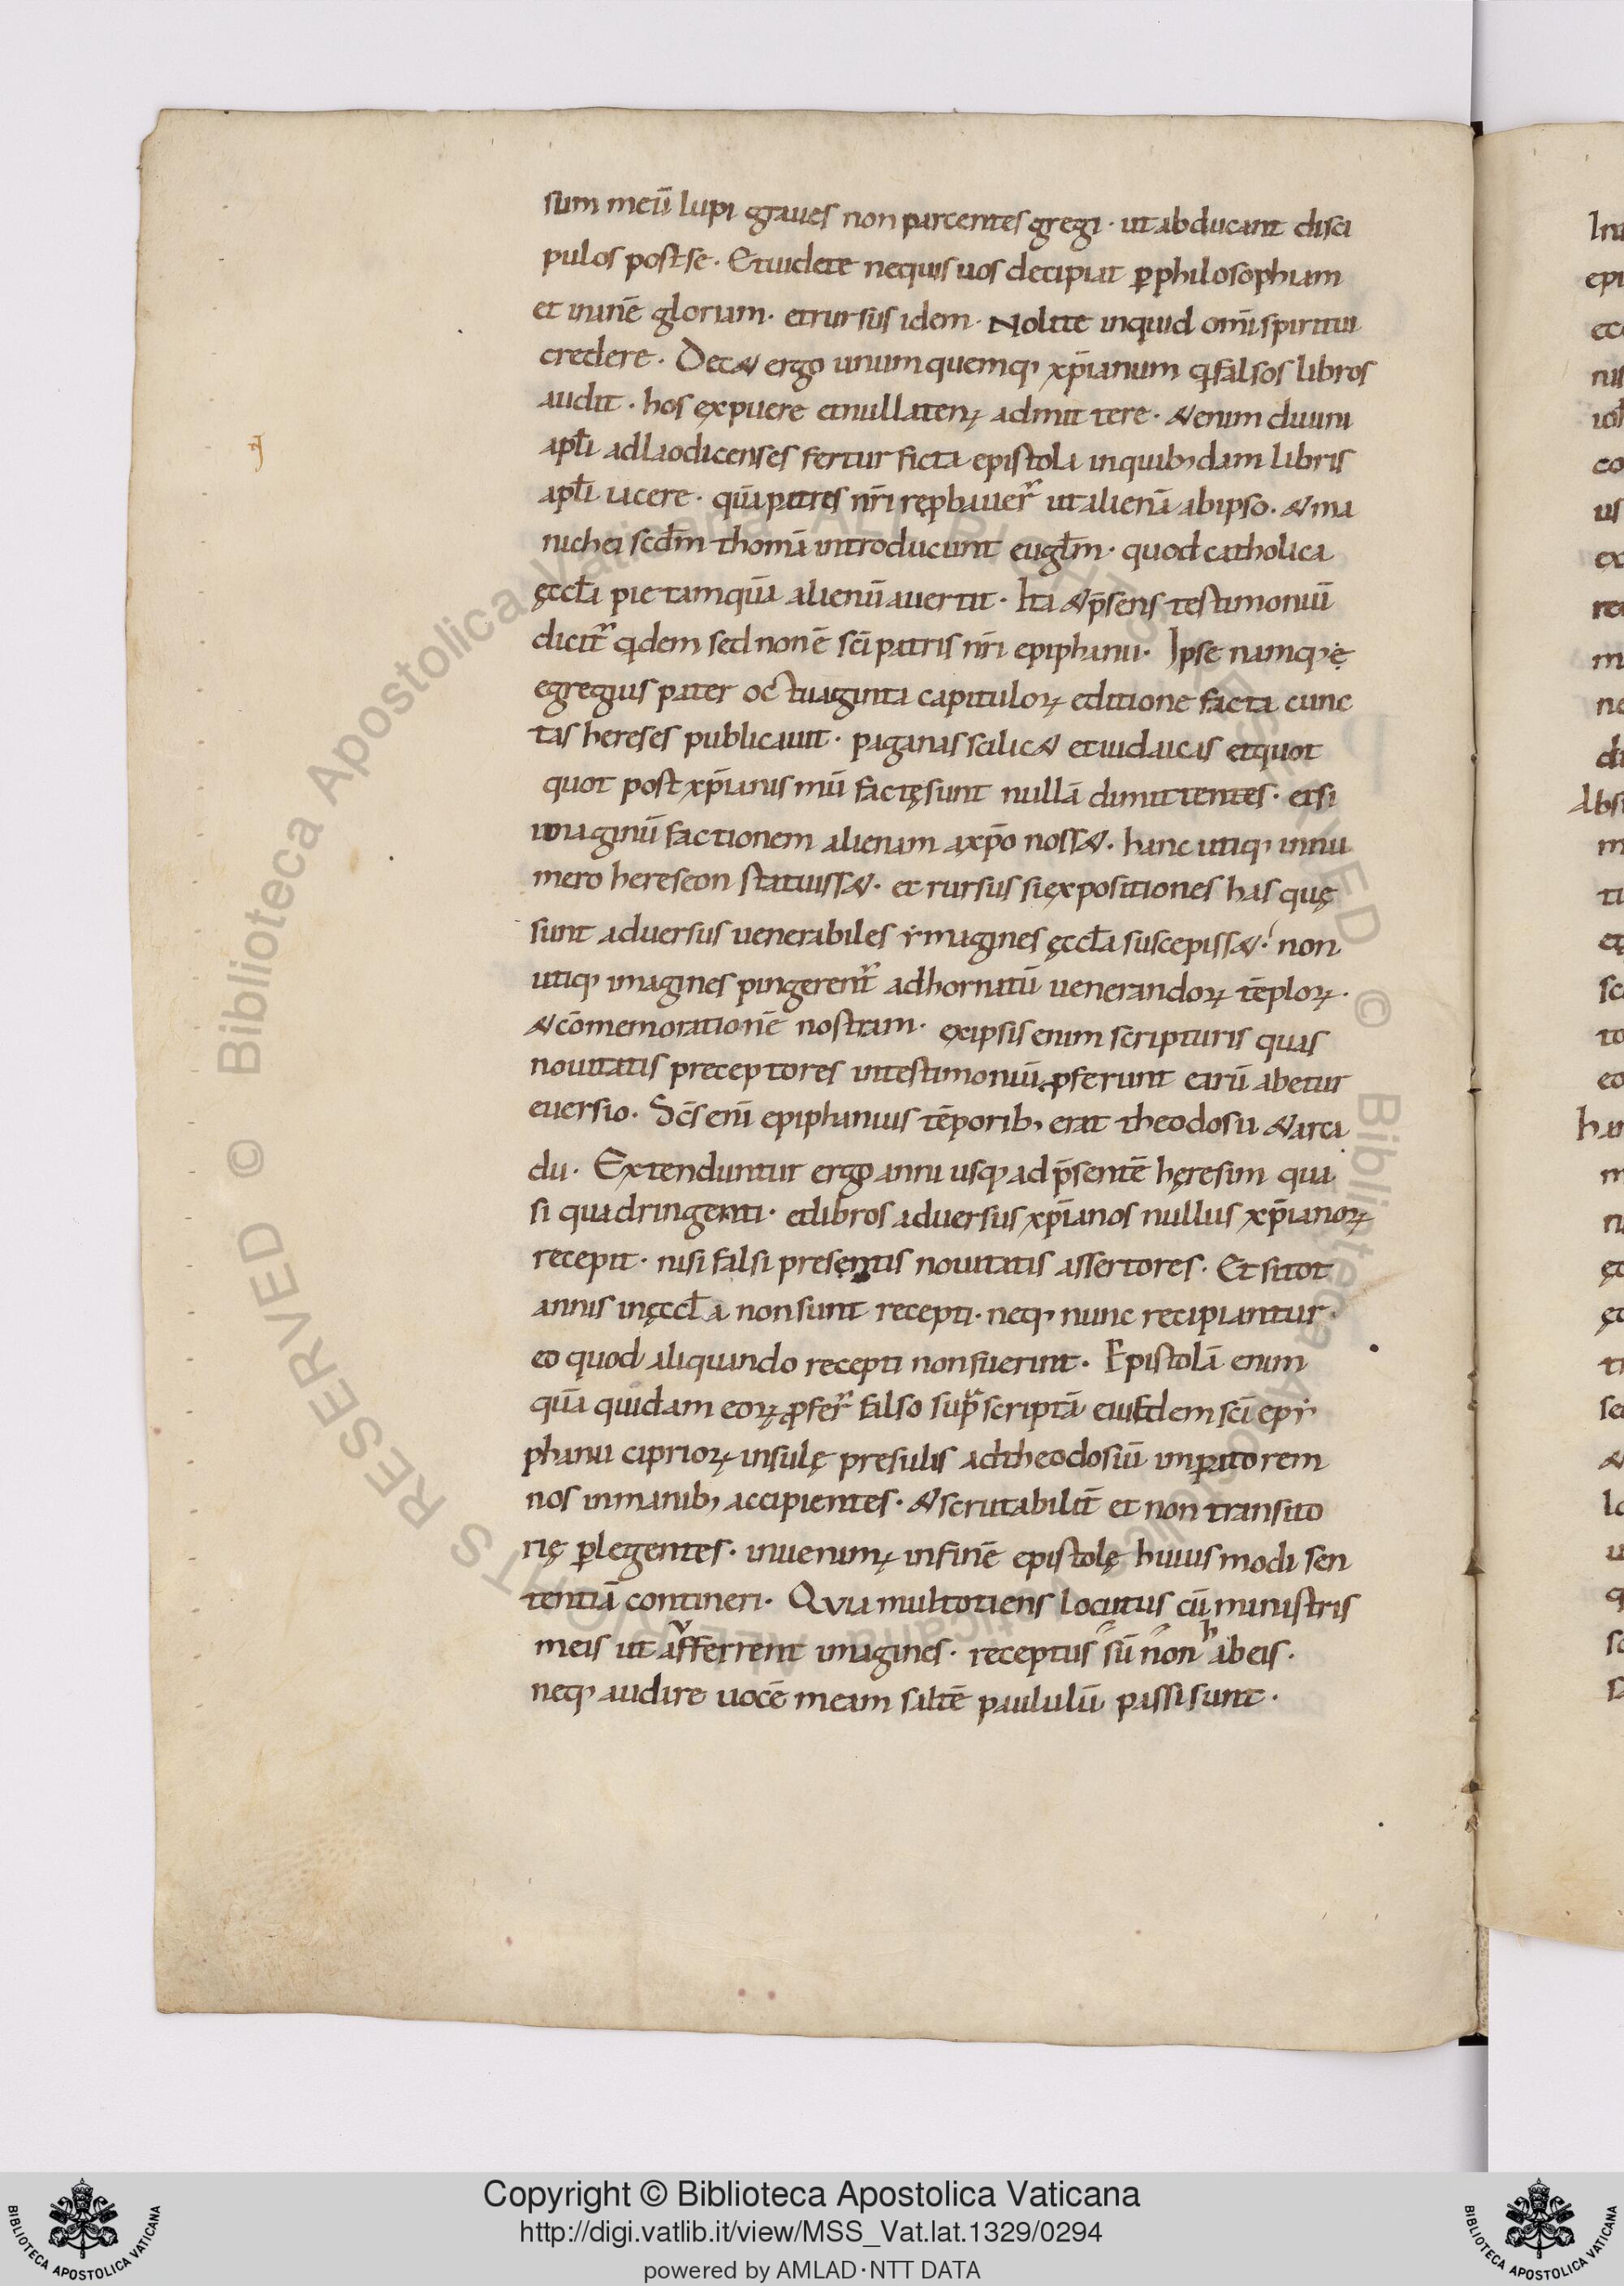 sum meū lupi graues non parcentes gregi · ut abducant disci
pulos post se · Et uidete nequis uos decipiat ꝑ philosophiam
et inanē gloriam · et rursus idem · Nolite inquid om̄i spiritui
credere · Decet ergo unum quemq; xp̄ianum q falsos libros
audit · hos expuere et nullatenꝰ admittere · & enim diuini
apłi ad laodicenses fertur ficta epistola in quib; dam libris
apłi iacere · quā patres nr̄i reꝓbauer̄ ut alienā ab ipso · & ma
nichei scdm̄ thomā introducunt eugłm · quod catholica
ęccła pie tamquā alienū auertit · Ita & p̄sens testimoniū
dicit̄ qdem sed non ē sc̄i patris nr̄i epiphanii · Ipse namq; ę
egregius pater octuaginta capituloꝝ editione facta cunc
tas hereses publicauit · paganas scilicet et iudaicas et quot
quot post xp̄ianismū factę sunt nullā dimittentes · et si
imaginū factionem alienam a xp̄o nosset · hanc utiq; in nu
mero hereseon statuisset · et rursus si expositiones has quę
sunt aduersus uenerabiles ymagines ęccła suscepisset · non
utiq; imagines pingerent̄ ad hornatū uenerandoꝝ tēploꝝ ·
& cōmemorationē nostram · ex ipsis enim scripturis quas
nouitatis preceptores in testimoniū ꝓferunt earū abetur
euersio · Sc̄s enī epiphanius tēporib; erat theodosii & arca
dii · Extenduntur ergo anni usq; ad p̄sentē hęresim qua
si quadringenti · et libros aduersus xp̄ianos nullus xp̄ianoꝝ
recepit · nisi falsi presentis nouitatis assertores · Et si tot
annis in ęccła non sunt recepti · neq; nunc recipiantur ·
eo quod aliquando recepti non fuerint · Epistolā enim
quā quidam eoꝝ ꝓfer̄ falso sup̄scriptā eiusdem sc̄i epy
phanii cipriorꝝ insulę presulis ad theodosiū imꝑatorem
nos in manib; accipientes · & scrutabilit̄ et non transito
rię ꝑlegentes · inuenimꝰ in finē epistolę huius modi sen
tentiā contineri · Quia multotiens locutus cū ministris
meis ut afferrent imagines · receptus sū non h abeis ·
neq; audire uocē meam saltē paululū passi sunt ·
Copyright © Biblioteca Apostolica Vaticana
http://digi.vatlib.it/view/MSS_Vat.lat.1329/0294
powered by AMLAD·NTT DATA